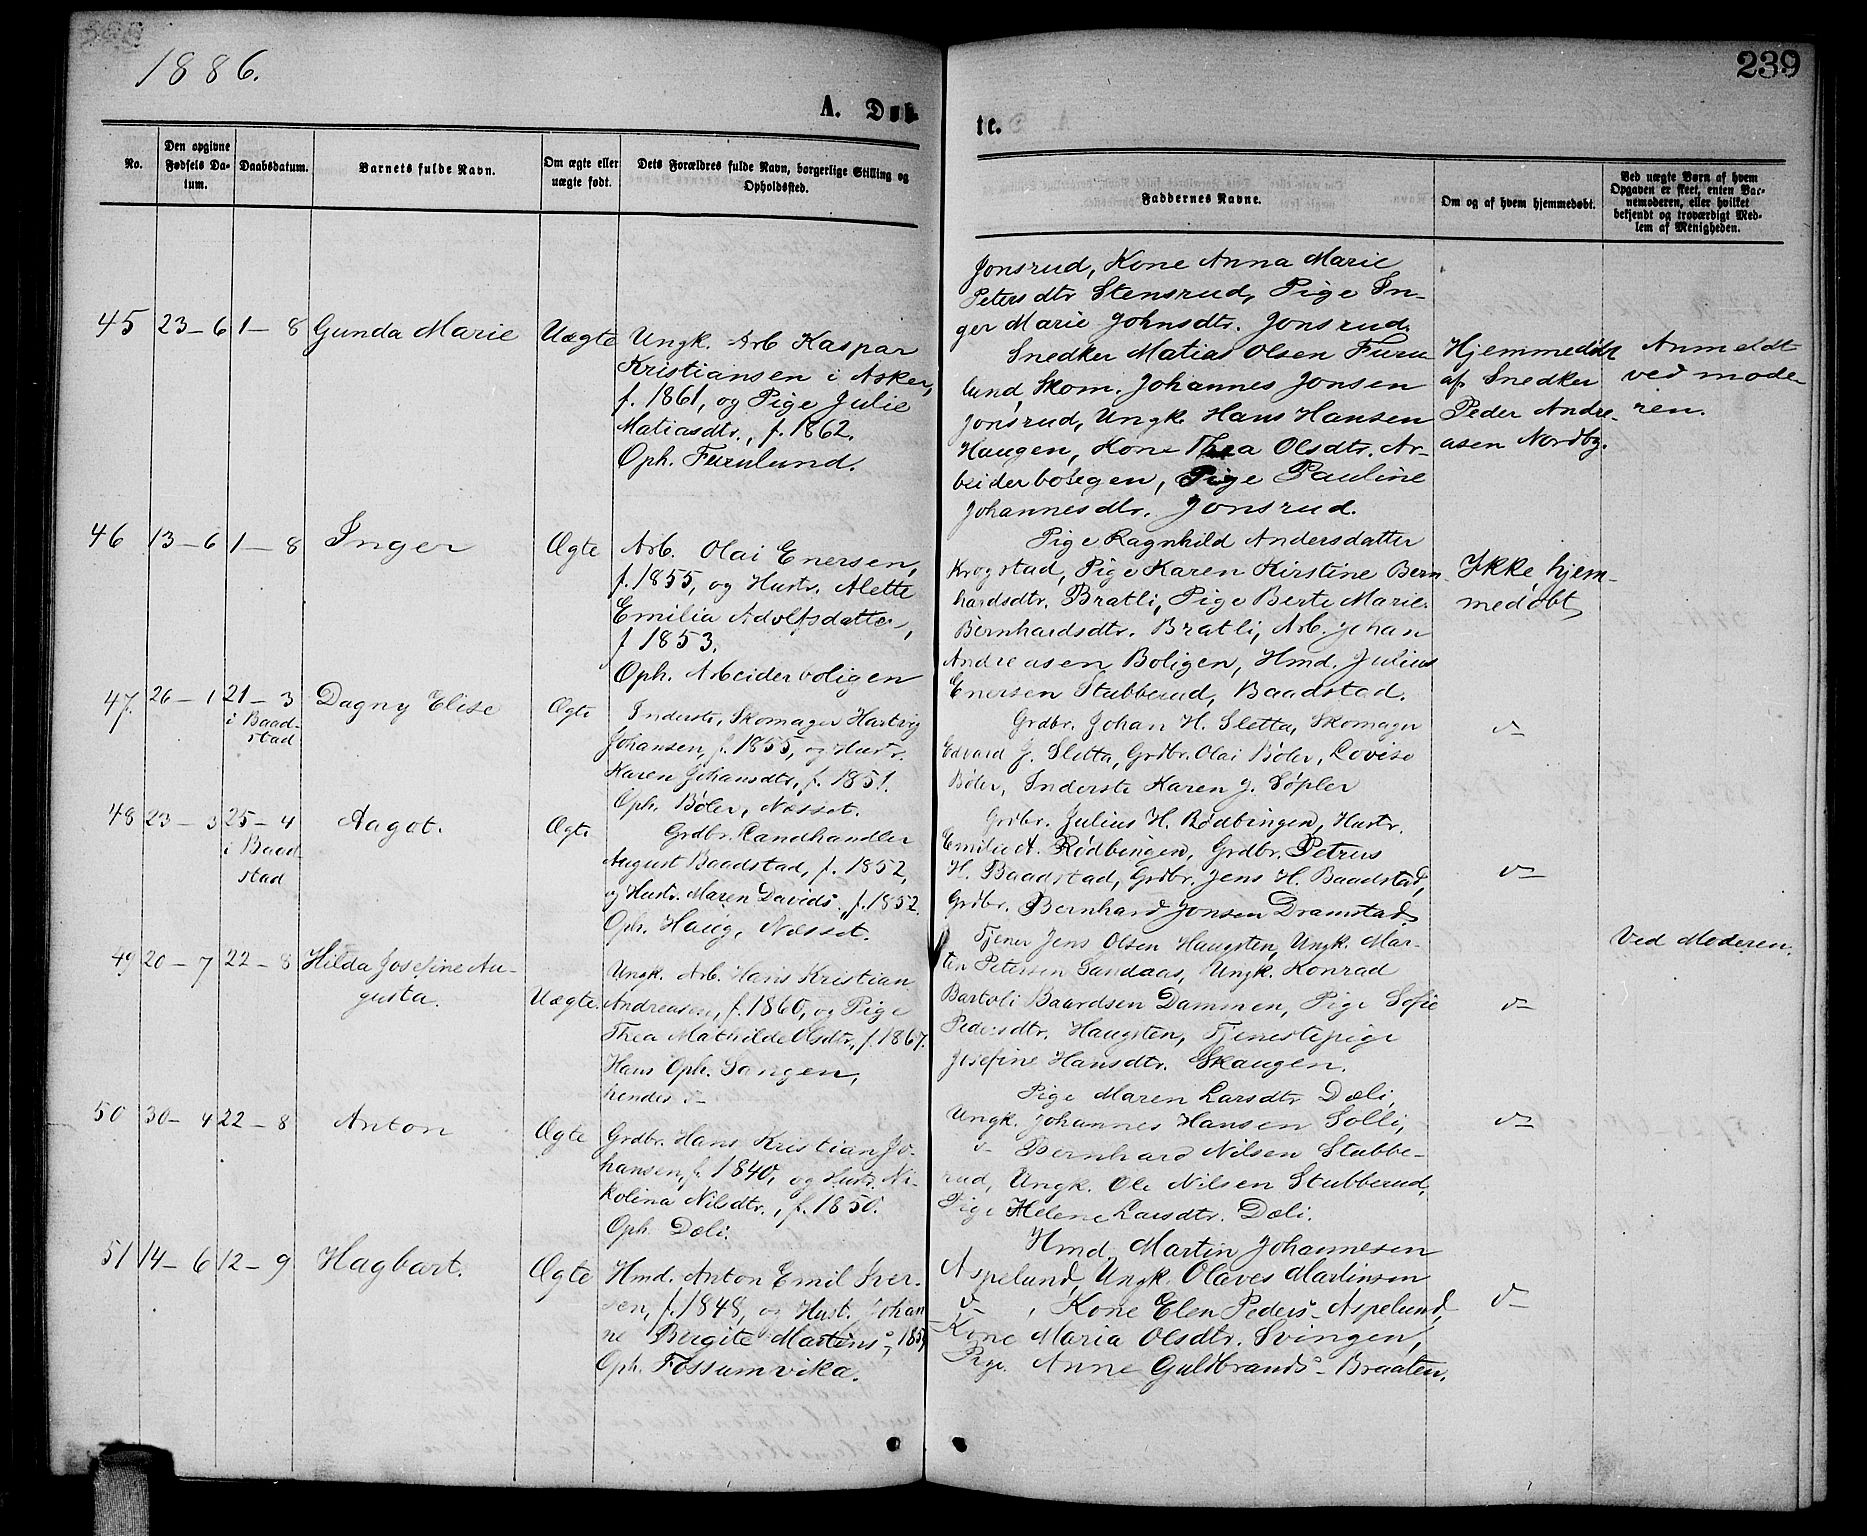 1886.
239
A. Døb-
te.
No.
Den opgivne Fødsels Da-
tum.
Daabsdatum.
Barnets fulde Navn.
Om ægte eller
uægte født.
Dets Forældres fulde Navn, borgerlige Stilling og
Opholdsted.
Faddernes Navne.
Om og af hvem hjemmedøbt.
Ved uægte Børn af hvem
Opgaven er skeet, enten Bar-
nemoderen, eller hvilket
bekjendt og troværdigt Med-
lem af Menigheden.
Jonsrud, Kone Anna Marie
Petersdtr Stensrud, Pige In-
ger Marie Johnsdtr. Jonsrud.
45 23-6 1-8 Gunda Marie Uægte
Ungk. Arb Kaspar
Kristiansen i Asker,
f. 1861, og Pige Julie
Matiasdtr., f. 1862.
Oph. Furulund.
Snedker Matias Olsen Furu
lund, Skom. Johannes Jonsen
Jonsrud, Ungk. Hans Hansen
Haugen, Kone Thea Olsdtr. Ar-
beiderboligen, Pige Pauline
Johannesdtr. Jonsrud.
Hjemmedøbt
af Snedker
Peder Andre-
asen Nordby.
Anmeldt
ved mode-
ren.
46 13-6 1-8 Inger Ægte
Arb. Olai Enersen,
f. 1855, og Hustr. Alette
Emilia Adolfsdatter,
f 1853.
Oph. Arbeiderboligen
Pige Ragnhild Andersdatter
Krogstad, Pige Karen Kirstine Bern
hardsdtr. Bratli, Pige Berte Marie
Bernhardsdtr. Bratli, Arb. Johan
Andreasen Boligen, Hmd. Julius
Enersen Stubberud, Baadstad.
Ikke hjem-
medøbt
47. 26-1 21-3
i Baad-
stad
Dagny Elise Ægte
Inderst, Skomager Hartvig
Johansen, f. 1855, og Hustr.
Karen Johansdtr., f. 1851.
Oph. Bøler, Næsset.
Grdbr. Johan H. Sletta, Skomager
Edvard J. Sletta, Grdbr. Olai Bøler, Lovise
Bøler, Inderste Karen J. Søpler
v-
48 23-3 25-4
i Baad
stad
Aagot. Ægte
Grdbr. Landhandler
August Baadstad, f. 1852,
og Hustr. Maren Davids-, f. 1852.
Oph. Haug, Næsset.
Grdbr. Julius H. Rødbingen, Hustr.
Emilie A. Rødbingen, Grdbr. Petrus
H. Baadstad, Grdbr. Jens H. Baadstad,
Grdbr. Bernhard Jonsen Dramstad
v-
49 20-7 22-8 Hilda Josefine Au-
gusta.
Uægte.
Ungk. Arb. Hans Kristian
Andreasen, f. 1860, og Pige
Thea Mathilde Olsdtr., f. 1867.
Hans Oph. Tangen,
hendes v-
Tjener Jens Olsen Haugsten, Ungk. Mar-
tin Petersen Sandaas, Ungk. Konrad
Bartoli Baardsen Dammen, Pige Sofie
Pedersdtr. Haugsten, Tjenestepige
Josefine Hansdtr. Skaugen.
v-
Ved Moderen.
50 30-4 22-8 Anton Ægte
Grdbr. Hans Kristian Jo-
hansen, f. 1840, og Hustr. Ni-
kolina Nilsdtr., f. 1850.
Oph. Dæli.
Pige Maren Larsdtr Dæli,
Ungk. Johannes Hansen Solli,
v- Bernhard Nilsen Stubbe-
rud, Ungk. Ole Nilsen Stubberud,
Pige Helene Larsdtr. Dæli.
v-
51 14-6 12-9 Hagbart. Ægte
Hmd. Anton Emil Iver-
sen, f. 1848, og Hust. Johan
ne Birgite Martins-, 185
Oph. Fossumvika.
Hmd. Martin Johannesen
Aspelund, Ungk. Olaves Martinsen
v- , Kone Elen Peders- Aspelund,
Kone Maria Olsdtr. Svingen,
Pige. Anne Guldbrands- Braaten.
v-